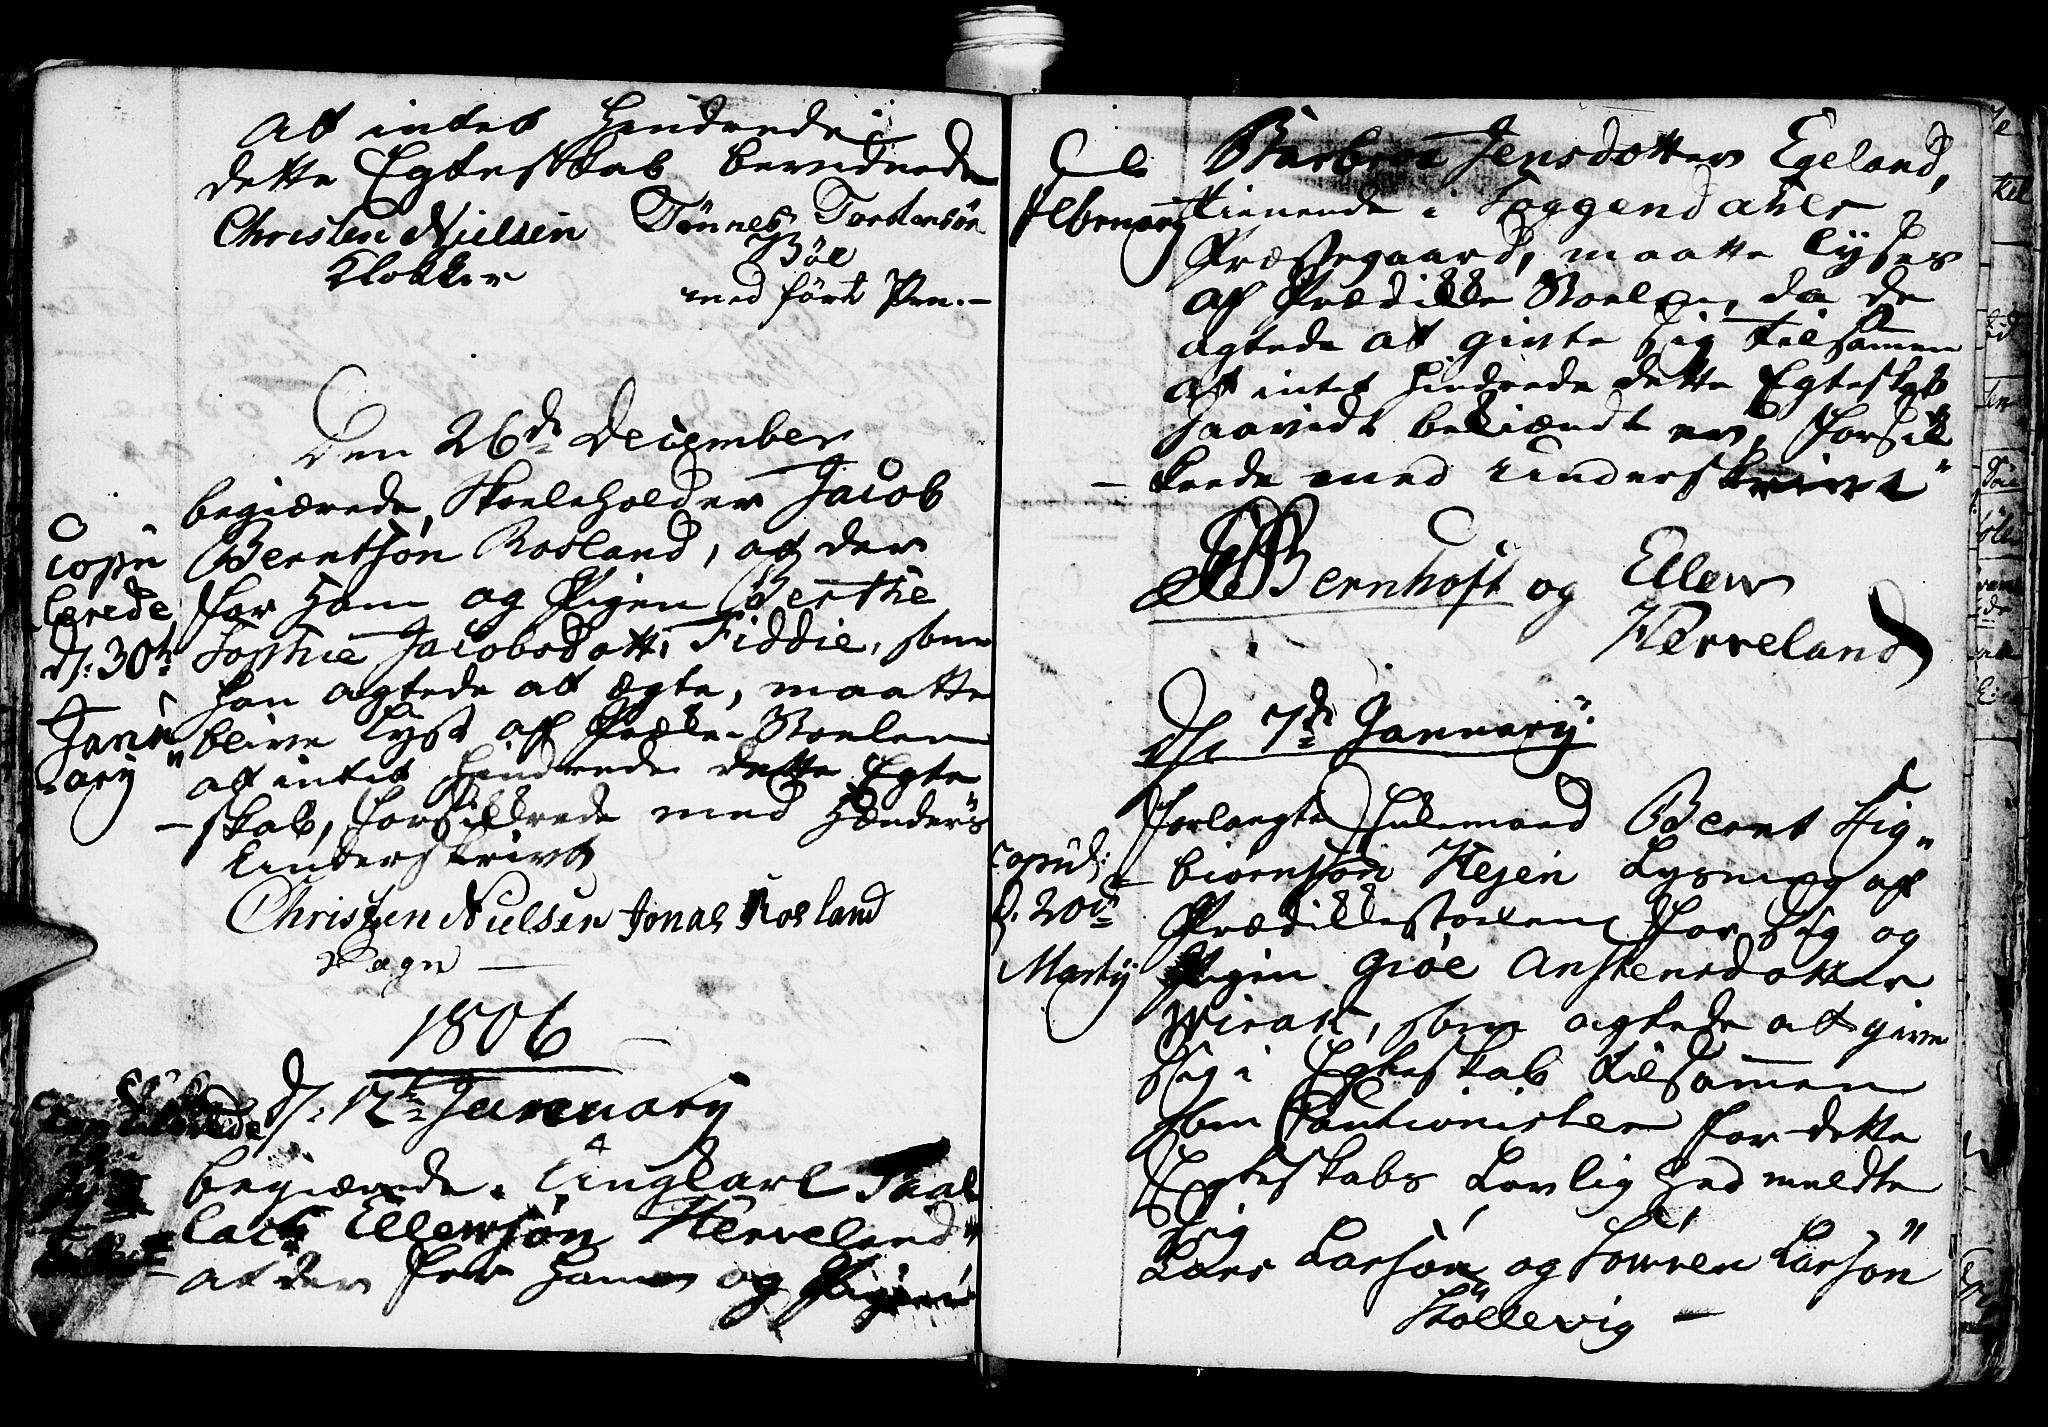 at intet Hindrede
dette Egteskab bevidnede
Christen Nielsen Tønnes Tordensøn
Klokker Bøe
medført Pen.
Den 26de December
begiærede Skoleholder Jacob
Berntsøn Rosland, at der
for Ham og Pigen Berthe
Sophie Jacobsdatt: Fiddie, som
han agtede at ægte, maatte
blive Lyst af Præke Stoelen
at intet Hindrede dette Egte
skab, forsikkrede med Hænders
Underskrivt
Christen Nielsen Jonas Rosland
Magn
copu
lerede
d: 30te
Janu
ary
1806
d: 12te January
begiærede Ungkarl Taal
lack Ellewsøn Herreland
at der for Ham og Pigen
Februarÿ
Barbroe Jensdotter Egeland,
tienende i Soggendahls
Præstegaard, maatte lyses
af Prædikke Stoelen, da de
agtede at givte sig tilsamen
at intet hindrede dette Egteskab
saavidt bekiændt er, forsik
krede med Underskrivt
Bernhoft og Ellew
Herreland
d: 7de Januarÿ.
forlangte Huusmand Bernt Sig
biørnsøn Hejen Lysning af
Prædikkestoelen for Sig og
Pigen Giøe Anstensdotter
Wirak, som agtede at give
sig i Egteskab tilsammen
som Cautionister for dette
Egteskabs Lovlighed meldte
sig
Lars Larsøn og Sørren Larsøn
Støllevig
copul:
d. 20de
Martÿ